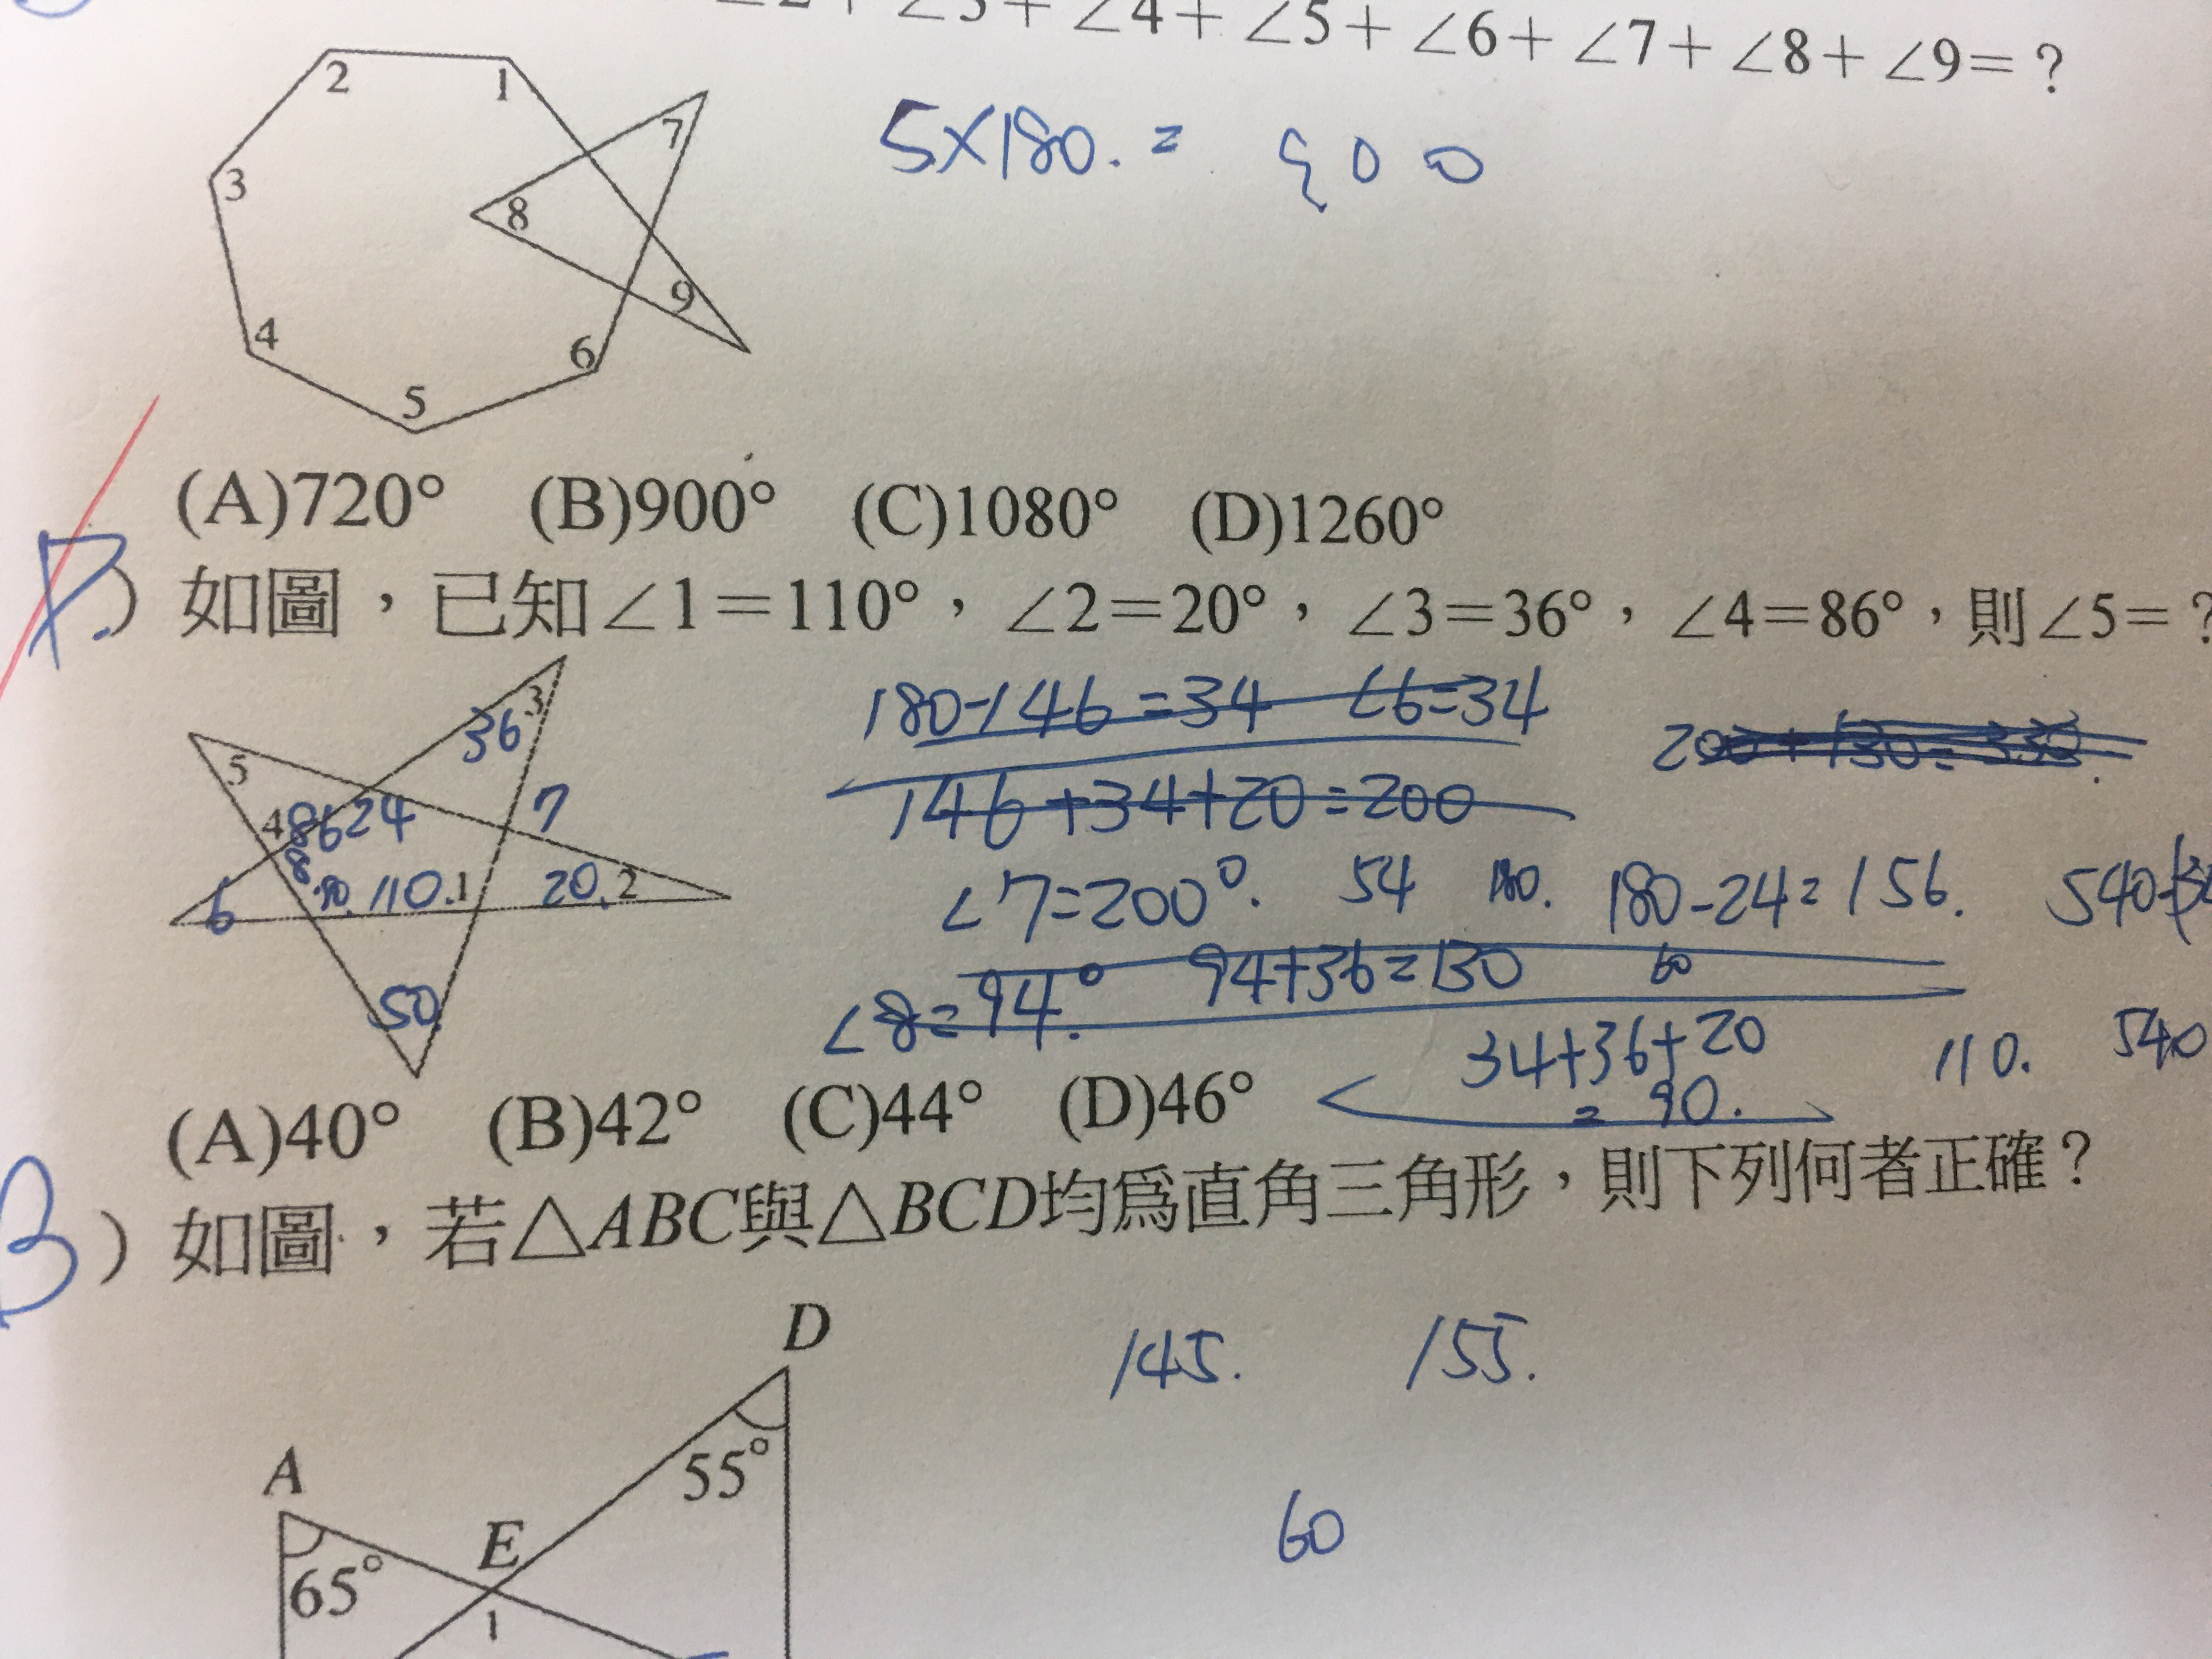 ∠3+∠4+∠5+∠6+∠7+∠8+∠9=?
2 1
3 7
8
9
4 6
5
5×180.=900
(A)720° (B)900° (C)1080° (D)1260°
) 如圖，已知∠1=110°，∠2=20°，∠3=36°，∠4=86°，則∠5=?
3
36
5
4 86 24 7
6 110. 1 20. 2
50
180-146=34 ∠6=34
146+34+20=200
200+130=330
∠7=200°. 54 180. 180-24=156. 540-
∠8=94.° 94+36=130 60
34+36+20
=90.
110. 540
(A)40° (B)42° (C)44° (D)46°
B ) 如圖，若△ABC與△BCD均為直角三角形，則下列何者正確？
D
55°
A
65°
E
1
145. 155.
60